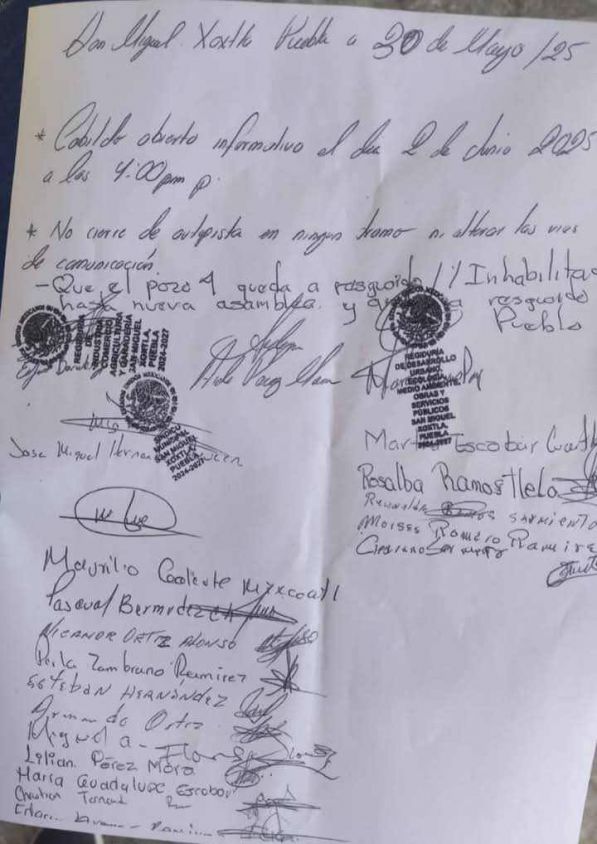 San Miguel Xoxtla Puebla a 30 de Mayo /25
* Cabildo abierto informativo el día 2 de Junio 2025
a las 4:00 pm
* No cierre de autopista en ningun tramo ni alterar las vias
de comunicación
- Que el pozo 4 queda a resguardo // Inhabilitar
hasta nueva asamblea. y resguardo
Pueblo
REGIDURIA
DE
INDUSTRIA
COMERCIO
AGRICULTURA
Y GANADERIA
SAN MIGUEL
XOXTLA,
PUEBLA
2024-2027
REGIDURIA
DE DESARROLLO
URBANO,
ECOLOGIA,
MEDIO AMBIENTE,
OBRAS Y
SERVICIOS
PUBLICOS
SAN MIGUEL
XOXTLA,
PUEBLA
2024-2027
SINDICO
MUNICIPAL
SAN MIGUEL
XOXTLA,
PUEBLA.
2024-2027
Jose Miguel
Escobar
Rosalba Ramos Tlelo
SARMIENTO
Moises Romero Ramirez
Cipriano Sarmiento
Maurilio Coaliente Mixcoatl
Pascual Bermudez
NICANOR ORTIZ ALONSO
Zambrano Ramirez
ESTEBAN HERNANDEZ
Armando Ortiz
Miguel a. Flores
Lilian Pérez Mora
María Guadalupe Escobar
Christian